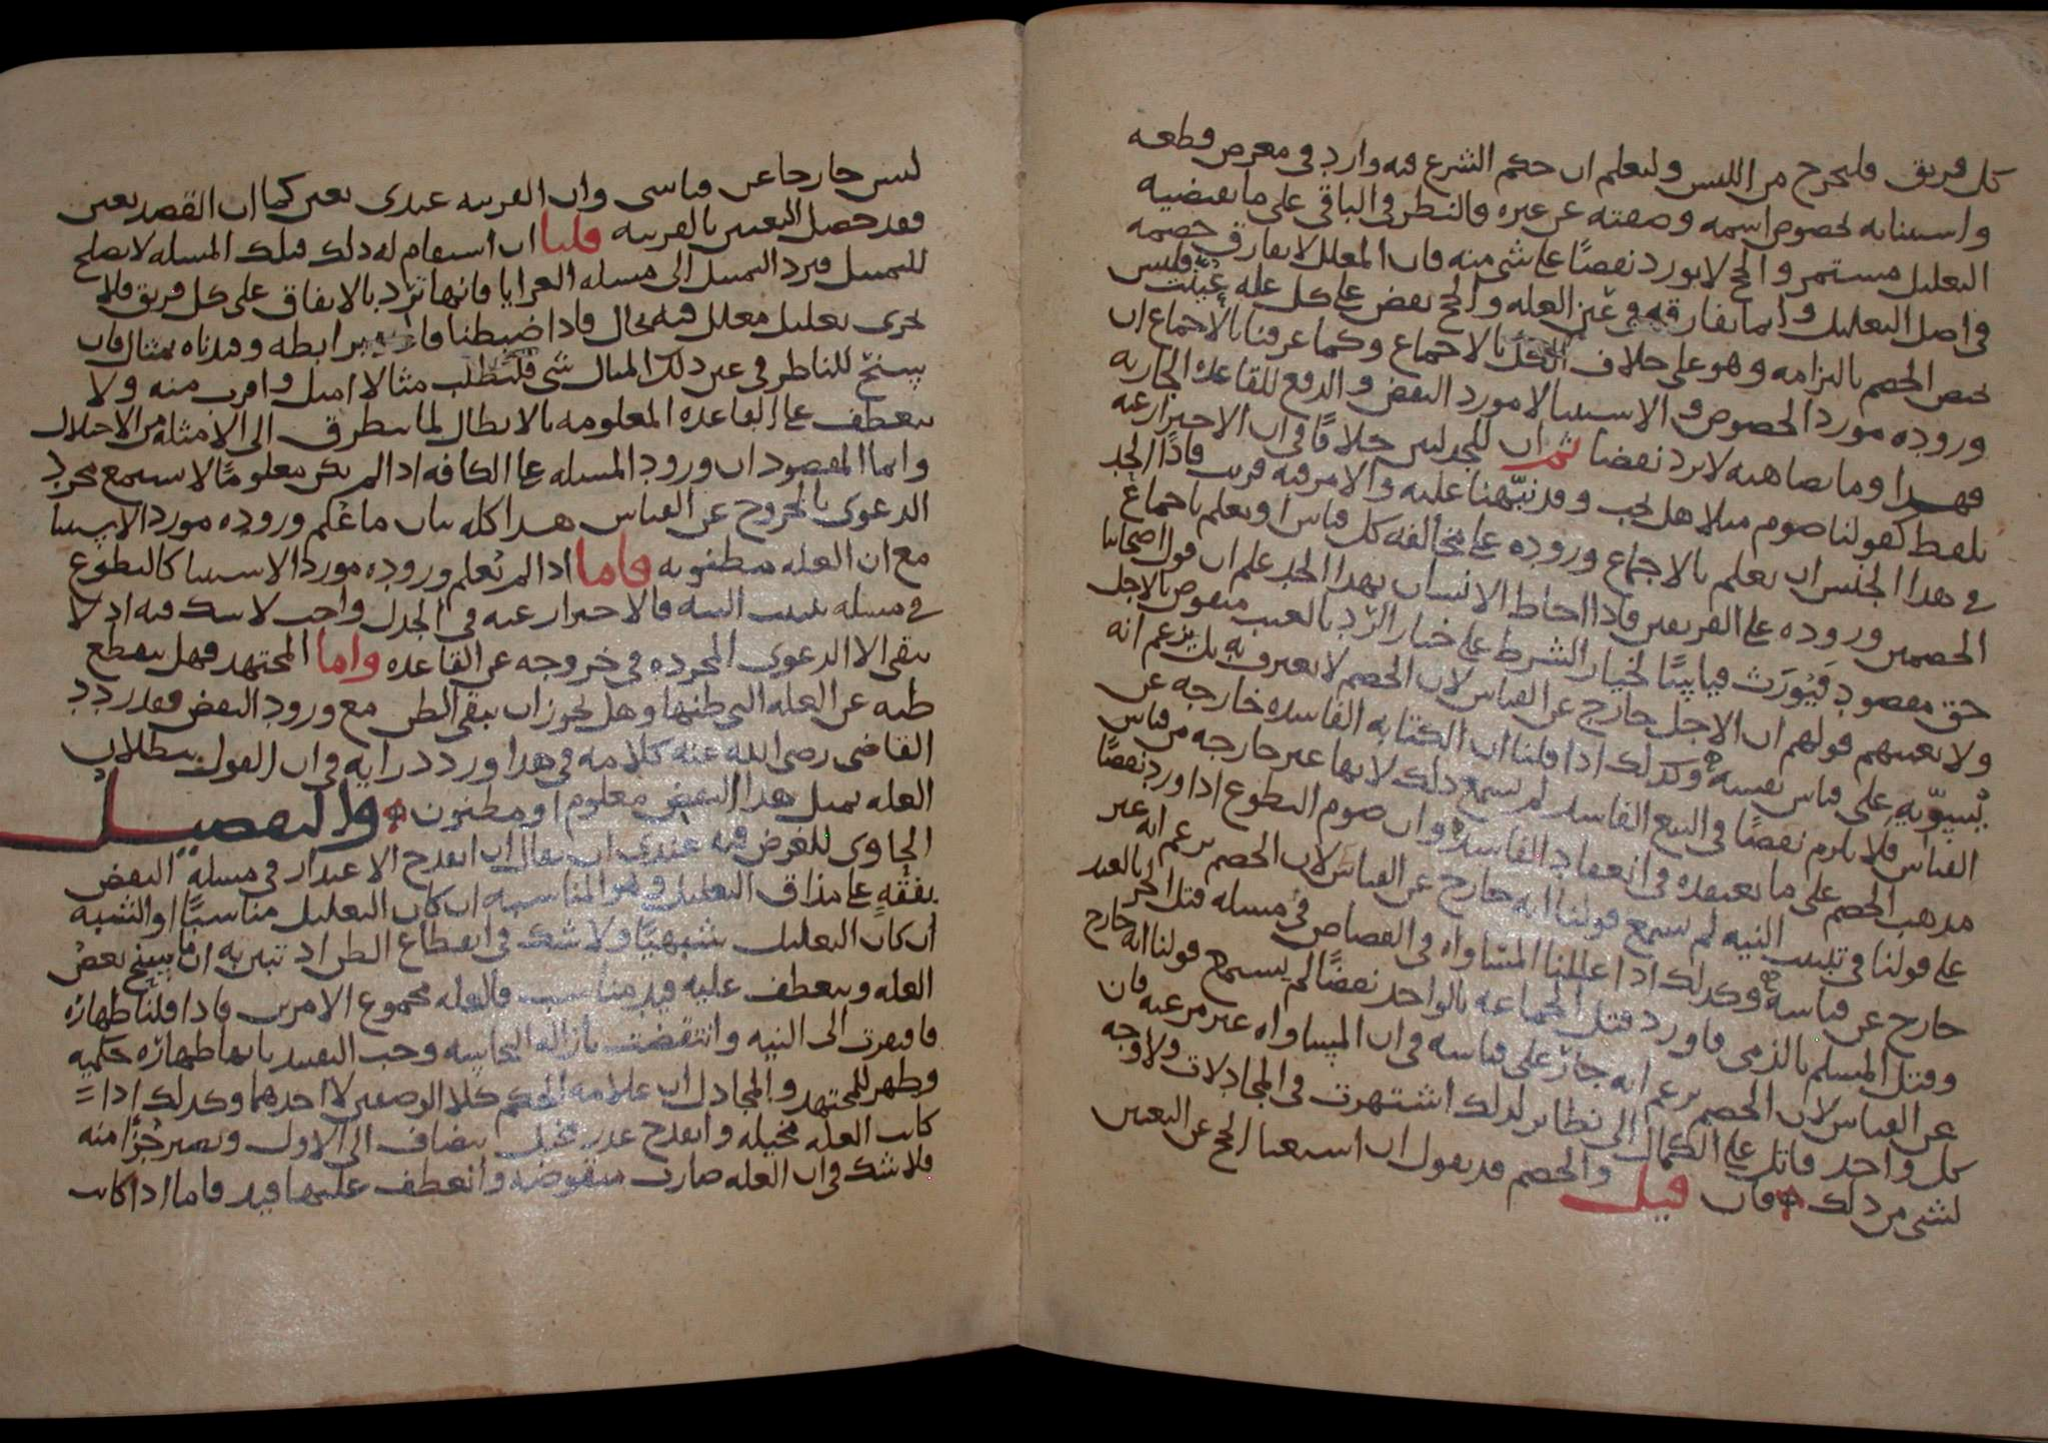 كل فريق فليخرج من اللبس وليعلم ان حكم الشرع فيه وارد في معرض قطعه
واستثنائه لخصوص اسمه وصفته عن غيره فالنظر في الباقي على ما يقتضيه
التعليل مستمر والحج لا يورد نقضًا على شي منه فان المعلل لا يفارق خصمه
في اصل التعليل وانما يفارقه في عين العلة والحج نقض على كل علة عُيّنت فليس
يختص الخصم بالتزامه وهو على خلاف الكل بالاجماع وكما عرفنا بالاجماع ان
وروده مورد الخصوص والاستثنا لا مورد النقض والدفع للقاعدة الجارية
فهذا وما يضاهيه لا يرد نقضا ثم ان للجدليين خلافًا في ان الاحتراز عنه
بلفظ كقولنا صوم مثلا هل يجب وقد نبّهنا عليه والامر فيه قريب فاذًا الحد
في هذا الجنس ان يعلم بالاجماع وروده على مخالفة كل قياس او يعلم باجماع
الخصمين وروده على الفريقين فاذا احاط الانسان بهذا الحد علم ان قول اصحابنا
حق مقصود فيُورَث قياسًا لخيار الشرط على خيار الرد بالعيب منقوض بالاجل
ولا يغنيهم قولهم ان الاجل خارج عن القياس لان الخصم لا يعترف به بل يزعم انه
يُسوّيه على قياس نفسه وكذلك اذا قلنا ان الكتابة الفاسدة خارجة عن
القياس فلا يلزم نقضًا في البيع الفاسد لم يسمع ذلك لانها غير خارجة من قياس
مذهب الخصم على ما يعتقده في انعقاد الفاسد وان صوم التطوع اذا ورد نقضًا
على قولنا في تبييت النية لم يسمع قولنا انه خارج عن القياس لان الخصم يزعم انه غير
خارج عن قياسه وكذلك اذا عللنا المساواة في القصاص في مسلة قتل الحر بالعبد
وقتل المسلم بالذمي فاورد قتل الجماعة بالواحد نقضًا لم يسمع قولنا انه خارج
عن القياس لان الخصم يزعم انه جار على قياسه في ان المساواة غير مرعية فان
كل واحد قاتل على الكمال الى نظائر لذلك اشتهرت في المجادلات ولا وجه
لشي من ذلك فان قيل والخصم قد يقول ان استغنا الحج عن التعيين
ليس خارجا عن قياسي وان القرينة عندي تعين كما ان القصد يعين
فقد حصل التعيين بالقرينة قلنا ان استقام له ذلك فتلك المسلة لا تصلح
للتمثيل فيرد التمثيل الى مسلة العرايا فانها ترد بالاتفاق على كل فريق فلا
يجري تعليل معلل فيه بحال فاذا ضبطنا رابطة وقدناه بمثال فان
يسنح للناظر في عين ذلك المثال شي فليطلب مثالا امثل واقرب منه ولا
ينعطف على القاعدة المعلومة بالابطال لما يتطرق الى الامثلة من الاختلال
وانما المقصود ان ورود المسلة على الكافة اذا لم يكن معلومًا لا يسمع مجرد
الدعوى بالخروج عن القياس هذا كله بيان ما عُلم وروده مورد الاستثنا
مع ان العلة مظنونة فاما اذا لم يُعلم وروده مورد الاستثنا كالتطوع
في مسلة تبييت النية فالاحتراز عنه في الجدل واجب لا شك فيه اذ لا
يبقى الا الدعوى المجردة في خروجه عن القاعدة واما المجتهد فهل ينقطع
ظنه عن العلة التي ظنها وهل يجوز ان يبقى الظن مع ورود النقض فقد ردد
القاضي رضي الله عنه كلامه في هذا وردد رايه في ان القول ببطلان
العلة بمثل هذا النقض معلوم او مظنون والتفصيل
الحاوي للغرض فيه عندي ان يقال ان انقدح الاعتذار في مسلة النقض
بفقه على مذاق التعليل وهو المناسبة ان كان التعليل مناسبًا او الشبه
ان كان التعليل شبهيًا ولا شك في انقطاع الطن اذ تبين به ان ما سنح بعض
العلة وينعطف عليه قيد مناسب فالعلة مجموع الامرين فاذا قلنا طهارة
فافتقرت الى النية وانتقضت بازالة النجاسة وجب التقييد بانها طهارة حكمية
وظهر للمجتهد والمجادل ان علامة الحكم كلا الوصفين لا احدهما وكذلك اذا
كانت العلة مخيلة وانقدح عذر مخيل ينضاف الى الاول ويصير جُزًا منه
فلا شك في ان العلة صارت منقوضة وانعطف عليها قيد فاما اذا كانت